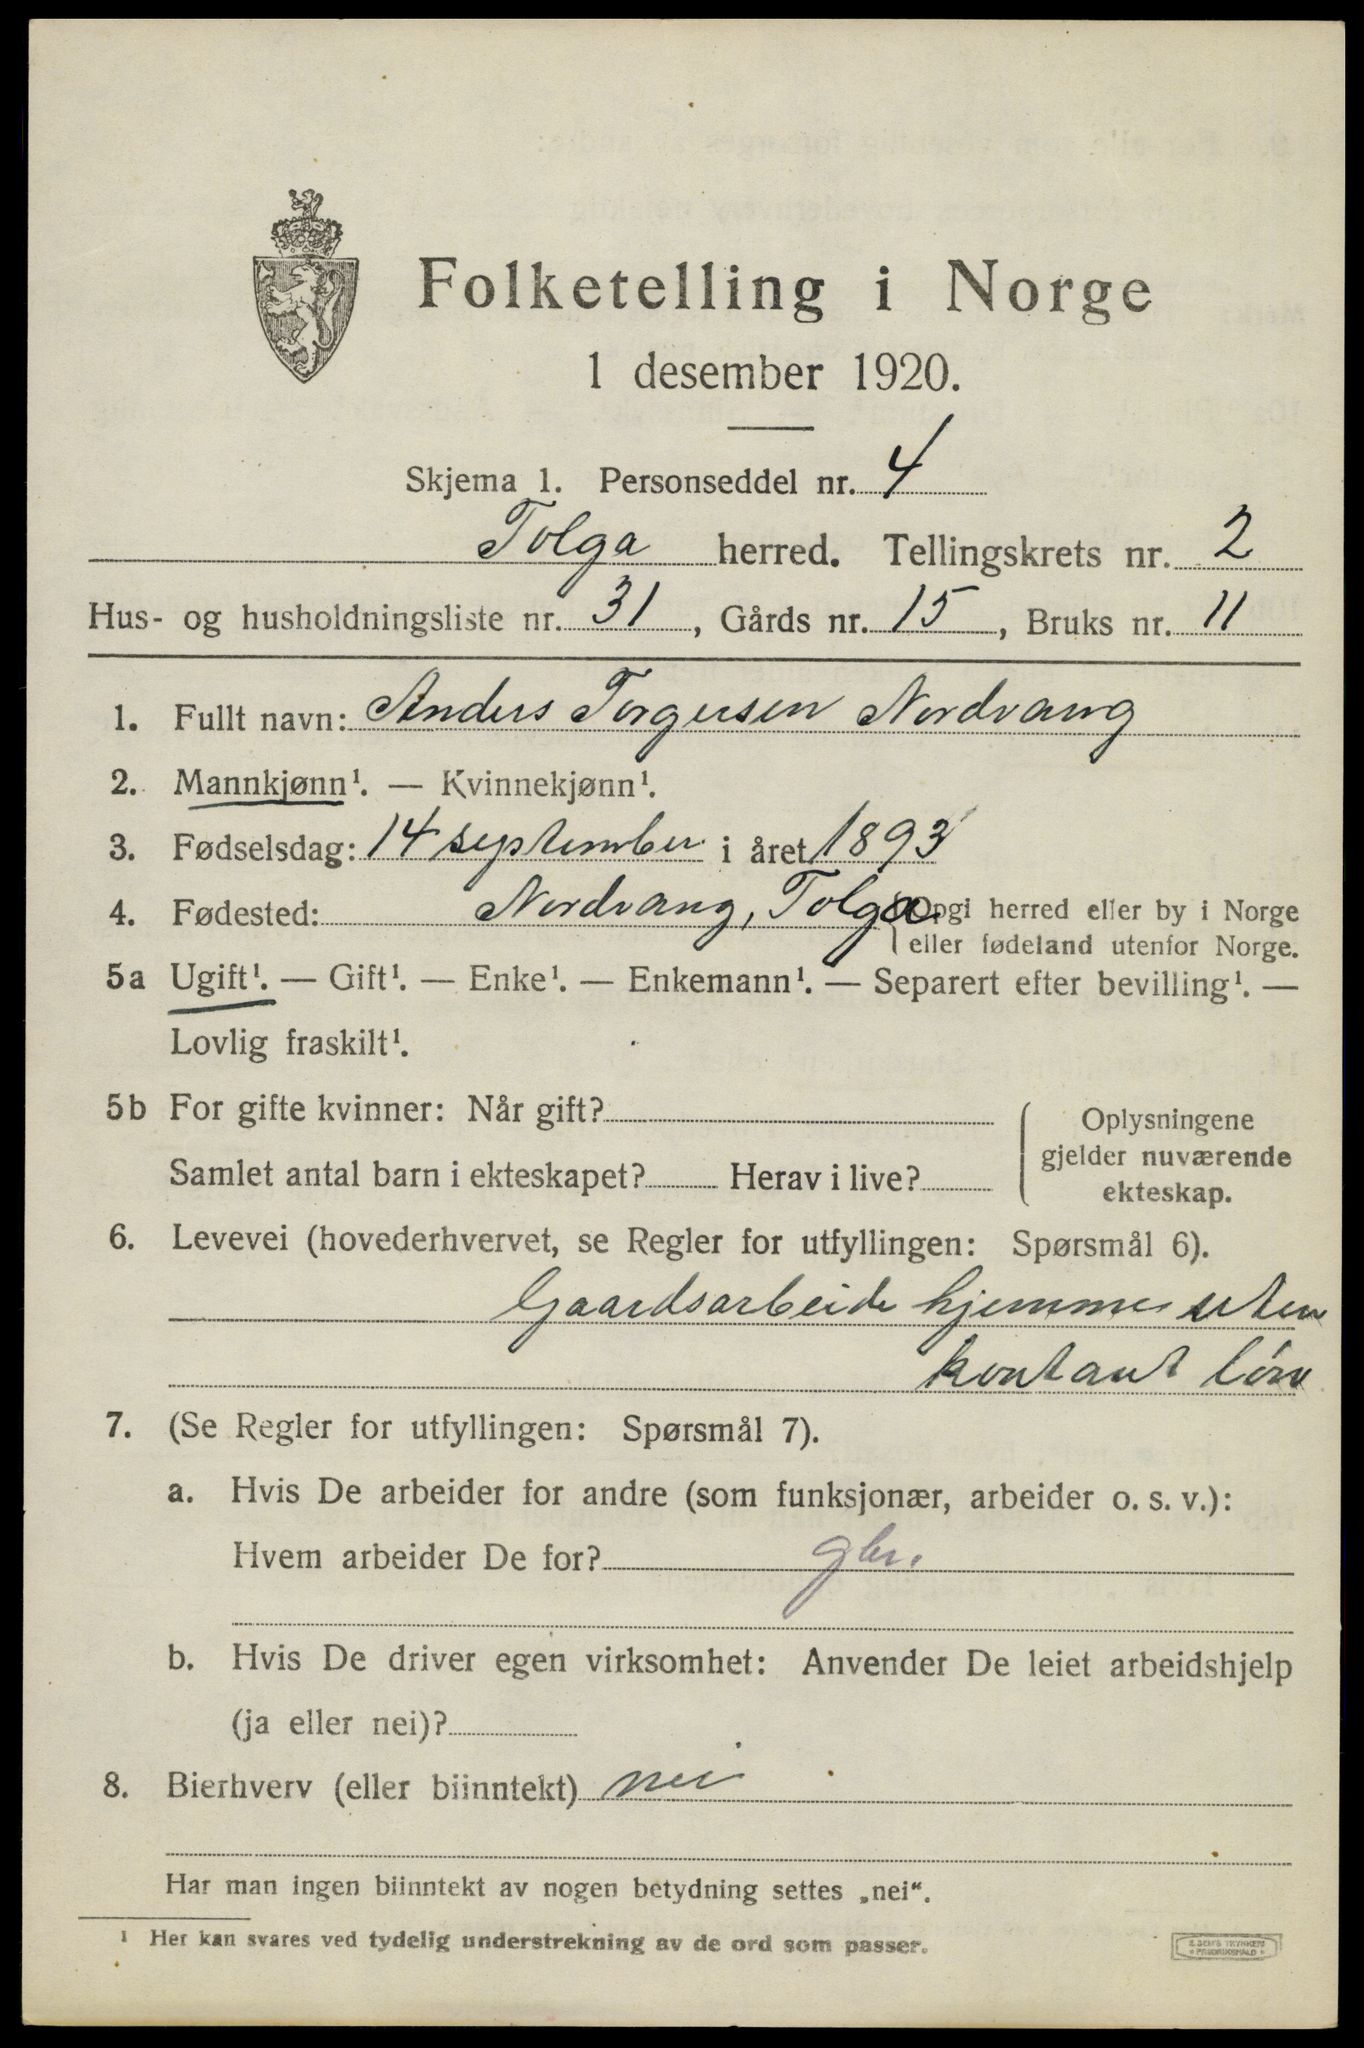 Folketelling i Norge
1 desember 1920.
Skjema 1. Personseddel nr. 4
Tolga herred. Tellingskrets nr. 2
Hus- og husholdningsliste nr. 31, Gårds nr. 15, Bruks nr. 11
1. Fullt navn: Anders Torgersen Nordvang
2. Mannkjønn¹. — Kvinnekjønn¹.
3. Fødselsdag: 14 september i året 1893
4. Fødested: Nordvang, Tolga Opgi herred eller by i Norge
eller fødeland utenfor Norge.
5a Ugift¹. — Gift¹. — Enke¹. — Enkemann¹. — Separert efter bevilling¹. —
Lovlig fraskilt¹.
5b For gifte kvinner: Når gift?
Samlet antal barn i ekteskapet? Herav i live?
Oplysningene
gjelder nuværende
ekteskap.
6. Levevei (hovederhvervet, se Regler for utfyllingen: Spørsmål 6).
Gaardsarbeide hjemme uten
kontant lön
7. (Se Regler for utfyllingen: Spørsmål 7).
a. Hvis De arbeider for andre (som funksjonær, arbeider o. s. v.):
Hvem arbeider De for? gbr.
b. Hvis De driver egen virksomhet: Anvender De leiet arbeidshjelp
(ja eller nei)?
8. Bierhverv (eller biinntekt) nei
Har man ingen biinntekt av nogen betydning settes „nei“.
¹ Her kan svares ved tydelig understrekning av de ord som passer.
E. SEM'S TRYKKERI
FREDRIKSHALD